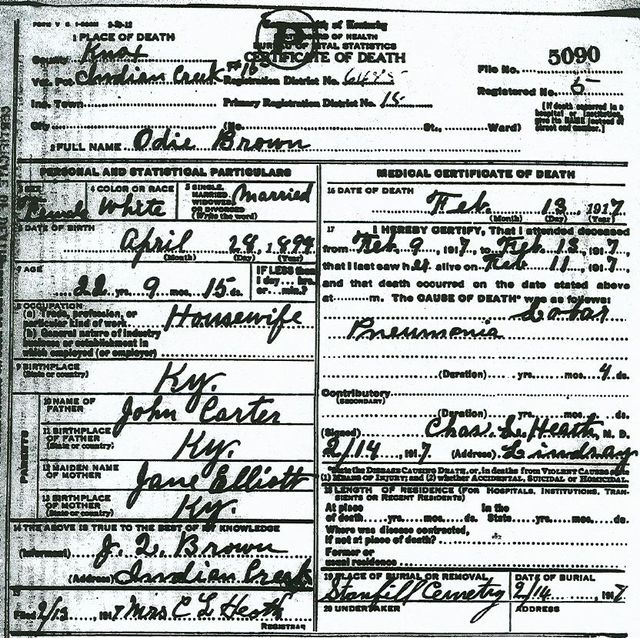 FORM V. S.
1 PLACE OF DEATH
County Knox
Vot. Pct. Indian Creek #16
Inc. Town
City
of Kentucky
BOARD OF HEALTH
BUREAU OF VITAL STATISTICS
CERTIFICATE OF DEATH
Registration District No.
Primary Registration District No. 15
(No. St., Ward)
File No. 5090
Registered No. 5
[If death occurred in a
hospital or institution
give its NAME instead of
street and number.]
2 FULL NAME Odie Brown
PERSONAL AND STATISTICAL PARTICULARS
3 SEX
Female
4 COLOR OR RACE
White
5 SINGLE,
MARRIED,
WIDOWED
OR DIVORCED
(Write the word)
Married
6 DATE OF BIRTH
April 28, 1894
(Month) (Day) (Year)
7 AGE
22 yrs. 9 mos. 15 ds.
IF LESS than
1 day... hrs.
or... min.?
8 OCCUPATION
(a) Trade, profession, or
particular kind of work
(b) General nature of industry
business or establishment in
which employed (or employer)
Housewife
9 BIRTHPLACE
(State or country)
Ky.
PARENTS
10 NAME OF
FATHER
John Carter
11 BIRTHPLACE
OF FATHER
(State or country)
Ky.
12 MAIDEN NAME
OF MOTHER
Jane Elliott
13 BIRTHPLACE
OF MOTHER
(State or country)
Ky.
14 THE ABOVE IS TRUE TO THE BEST OF MY KNOWLEDGE
(Informant) J. Q. Brown
(Address) Indian Creek
15
Filed 2/13, 1917 Mrs C L Heath
REGISTRAR
MEDICAL CERTIFICATE OF DEATH
16 DATE OF DEATH
Feb. 13 1917
(Month) (Day) (Year)
17 I HEREBY CERTIFY, That I attended deceased
from Feb 9, 1917, to Feb 13, 1917,
that I last saw her alive on Feb 11, 1917,
and that death occurred on the date stated above
at m. The CAUSE OF DEATH* was as follows:
Lobar
Pneumonia
(Duration) yrs. mos. 4 ds.
Contributory
(SECONDARY)
(Duration) yrs. mos. ds.
(Signed) Chas. L. Heath, M. D.
2/14, 1917 (Address) Lindsay
*State the DISEASE CAUSING DEATH, or, in deaths from VIOLENT CAUSES state
(1) MEANS OF INJURY; and (2) whether ACCIDENTAL, SUICIDAL or HOMICIDAL.
18 LENGTH OF RESIDENCE (FOR HOSPITALS, INSTITUTIONS, TRANSIENTS
OR RECENT RESIDENTS)
At place of death yrs. mos. ds. In the State yrs. mos. ds.
Where was disease contracted,
if not at place of death?
Former or
usual residence
19 PLACE OF BURIAL OR REMOVAL
Stanfill Cemetry
DATE OF BURIAL
2/14, 1917
20 UNDERTAKER
ADDRESS